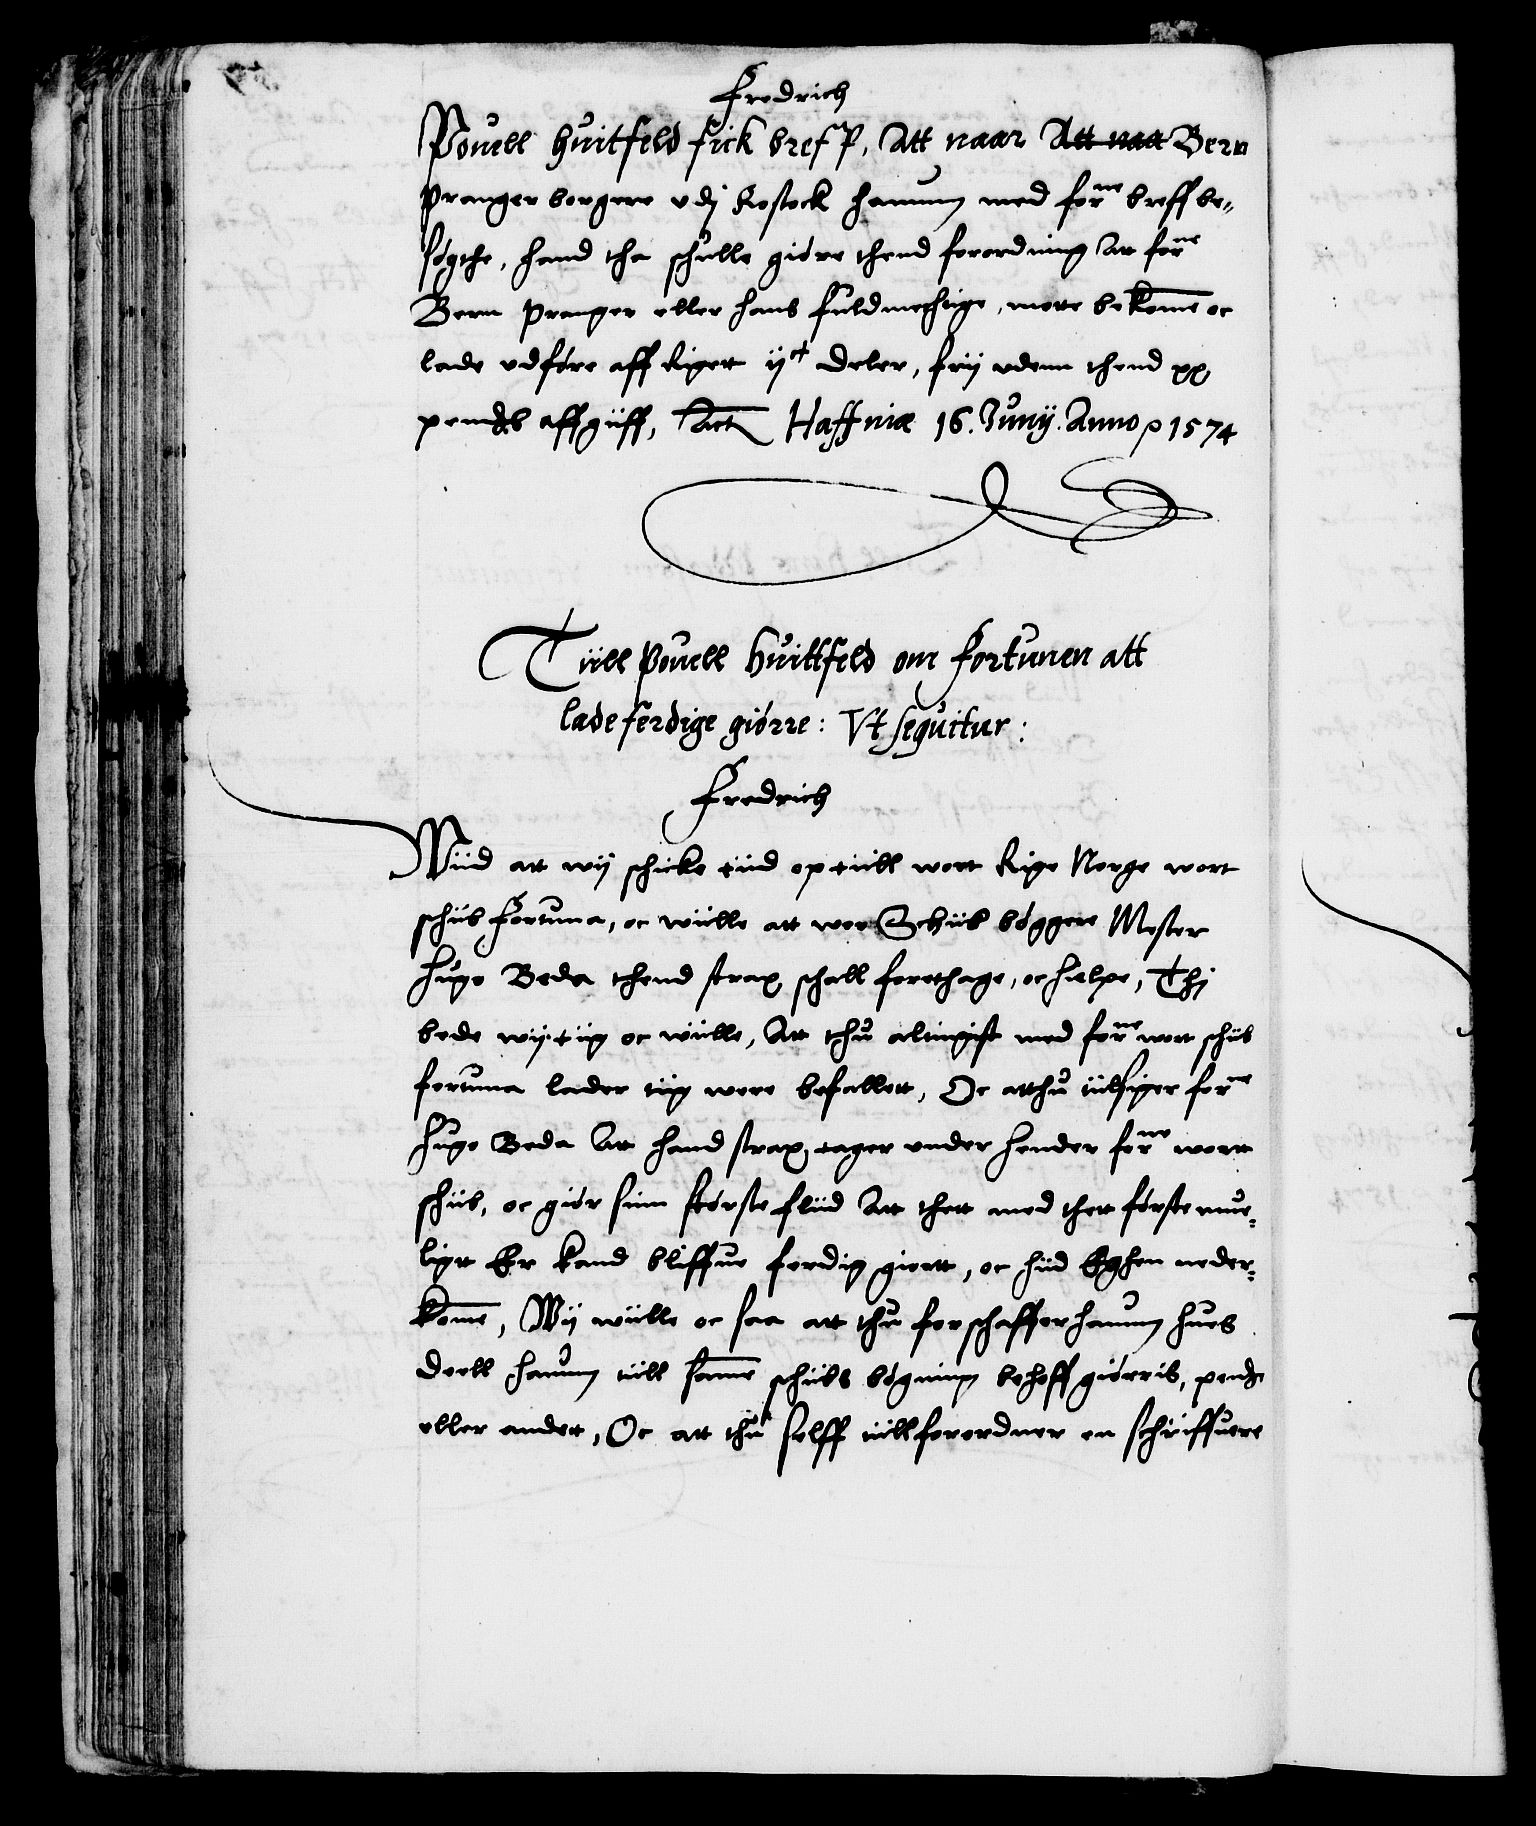 Fredrich
Pouell Huitfeld fick breff P, Att naar Att natt Bern
Pranger borgere vdj Rostock hanum med forne breff be„
søgthe, hand tha schulle giøre thend forordning Att forne
Bern Pranger eller hans fuldmechtige, motte bekome oc
lade vdføre aff Rigett ij# Deler, frij vdenn thend xx
pendgs affgiifft, Act Haffniæ 16. Junij. Anno p 1574
Tiill Pouell Huittfeld om Fortunen att
lade ferdige giørre: Vt sequitur:
Fredrich
Wiid att wij schicke tiid op tiill wort Rige Norge wort
schiib Fortuna, oc wiille att wor Schiib bøggere Mester
Hugo Beda thend strax schall forethage, oc hielpe, Thj
bede wij tiig oc wiille, Att thu alwingist med forne wort schiib
fortuna lader tiig were befallett, Oc atthu tiilsiger forne
Hugo Beda Att hand strax tager under hender forne wortt
schiib, oc giør siin største fliid Att thett med thett første mue„
ligt Er kand bliffue ferdig giortt, oc hiid Eghen neder„
kome, Wij wiille oc saa att thu forschaffer hanum hues
deell hanum tiill same schiibs bygning behoff giørris, pendge
eller andet, Oc att thu selff tiillforordner en schriffuere